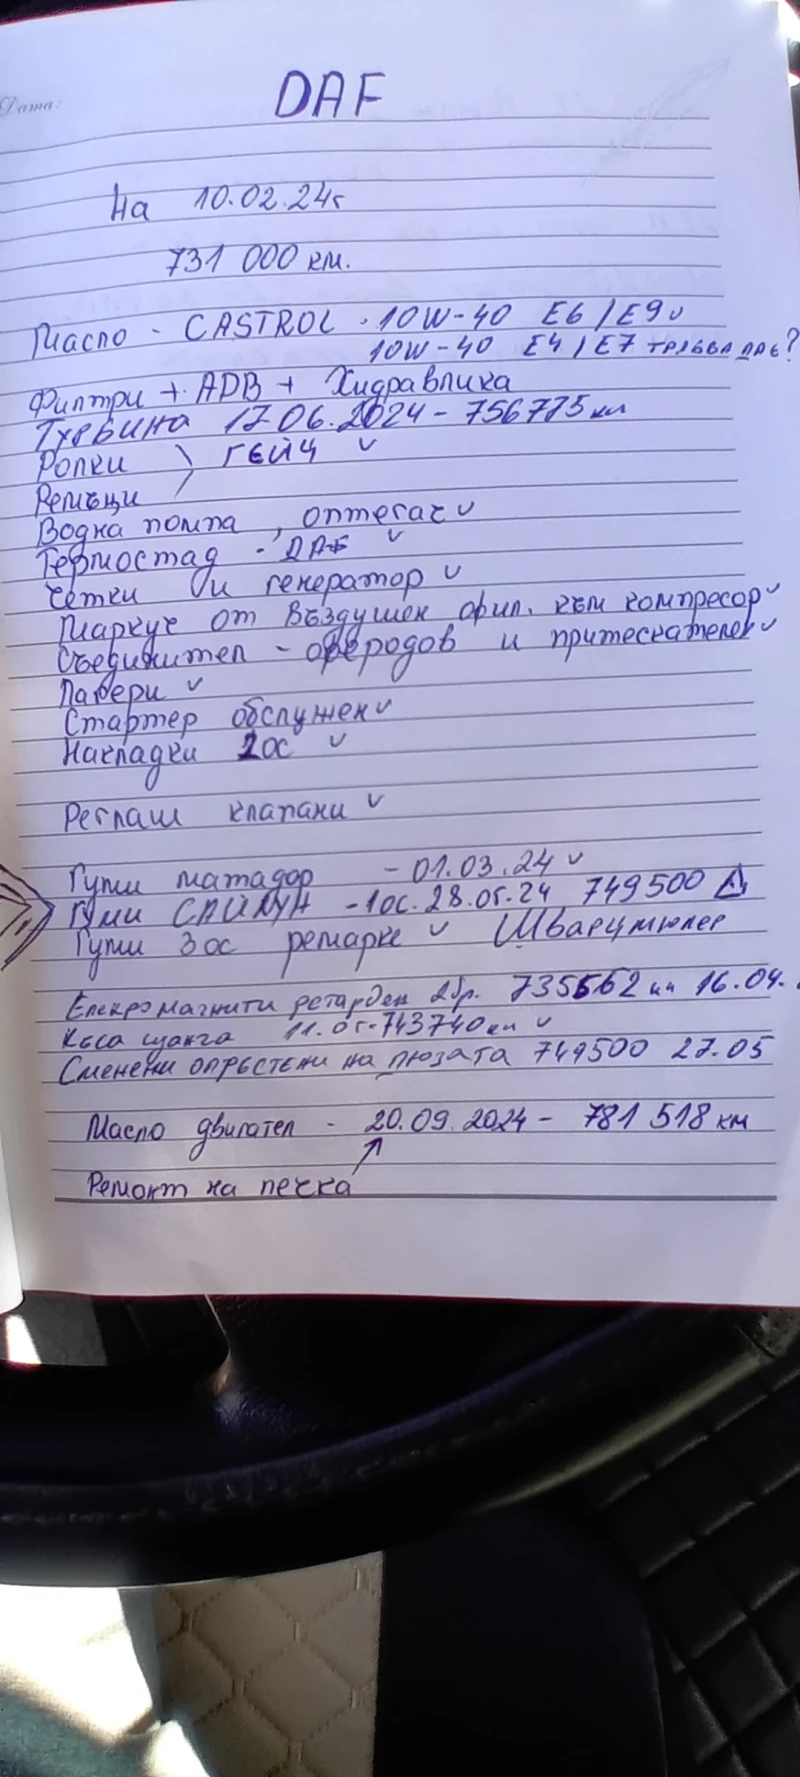 Дата:
DAF
На 10.02.24г
731 000 км.
Масло - CASTROL - 10W-40 E6 / E9
10W-40 E4 / E7 трябва да е?
Филтри + ADB + Хидравлика
Турбина 17.06.2024 - 756775 км
Ролки } ГЕЙЦ
Ремъци
Водна помпа, оптегач
Термостад - DAF
Четки и генератор
Маркуч от Въздушен фил. към компресор
Съединител - фередов и притескател
Лагери
Стартер обслужен
Накладки 2ос
Реглаш клапани
Гуми матадор - 01.03.24
Гуми САЙЛУН - 1ос. 28.05.24 749500
Гуми 3ос ремарке Шварцмюлер
Елекромагнити ретардек 2бр. 735562 км 16.04.
Къса щанга 11.05-743740 км
Сменени опръстени на люзата 749500 27.05
Масло двигател - 20.09.2024 - 781 518 км
Ремонт на печка